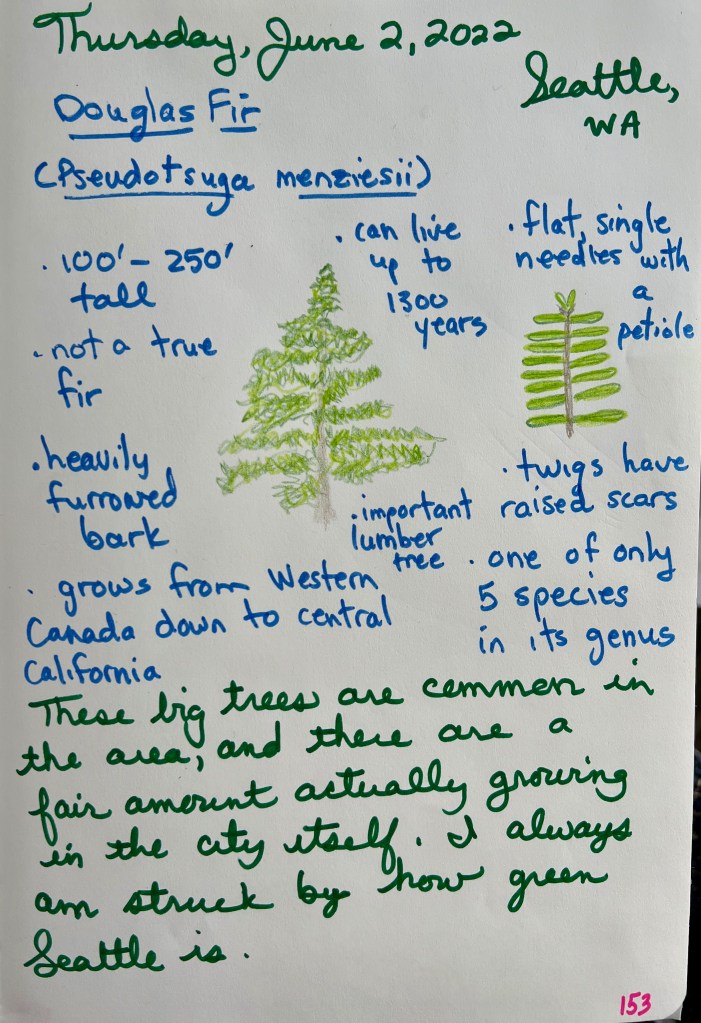 Thursday, June 2, 2022
Seattle,
WA
Douglas Fir
(Pseudotsuga menziesii)
. 100' - 250'
tall
. not a true
fir
. heavily
furrowed
bark
. can live
up to
1300
years
. flat, single
needles with
a
petiole
. twigs have
raised scars
. important
lumber
tree
. one of only
5 species
in its genus
. grows from Western
Canada down to central
California
These big trees are common in
the area, and there are a
fair amount actually growing
in the city itself. I always
am struck by how green
Seattle is.
153